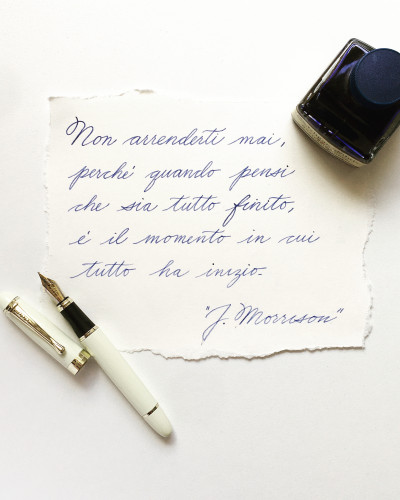 Non arrenderti mai,
perché quando pensi
che sia tutto finito,
é il momento in cui
tutto ha inizio.
"J. Morrison"